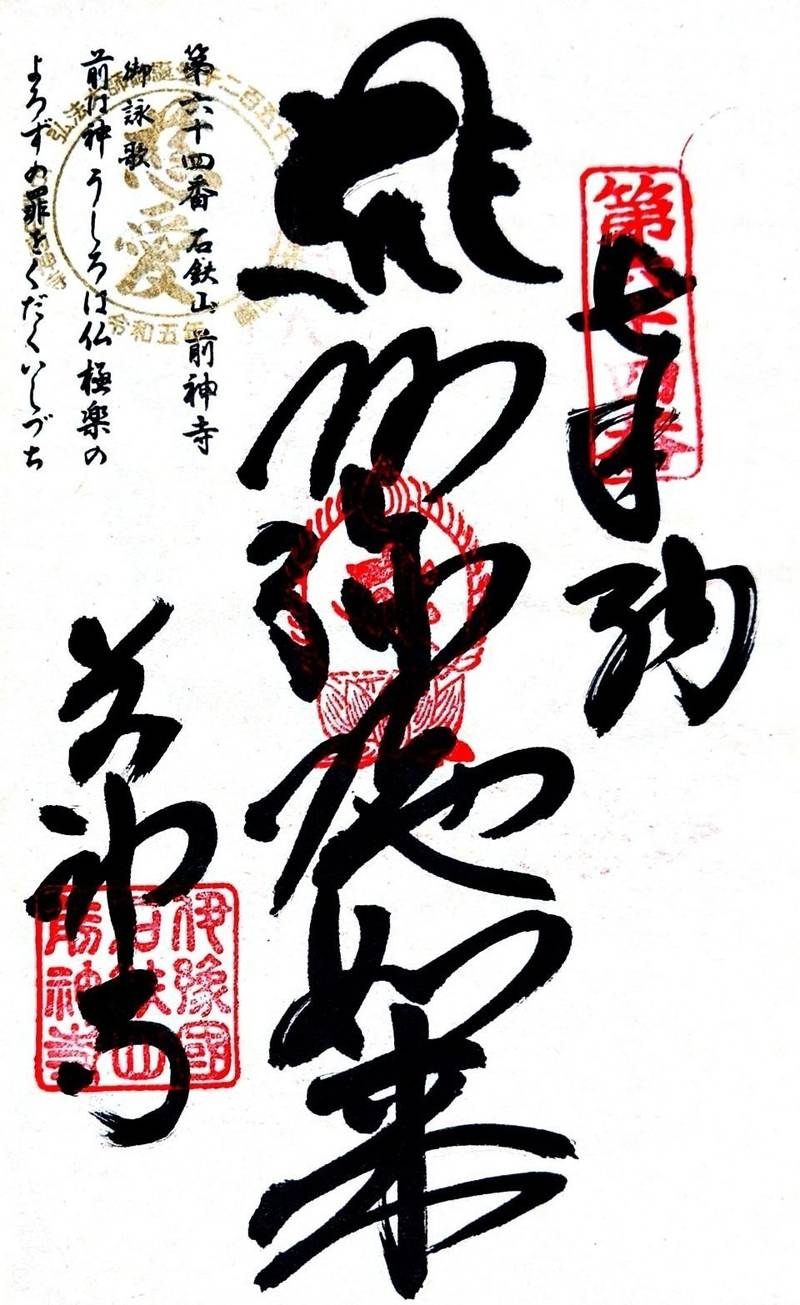 第六十四番
奉納
阿弥陀如来
前神寺
伊豫國
石鉄山
前神寺
第六十四番 石鉄山 前神寺
御詠歌
前は神 うしろは仏 極楽の
よろずの罪をくだくいしづち
慈愛
令和五年